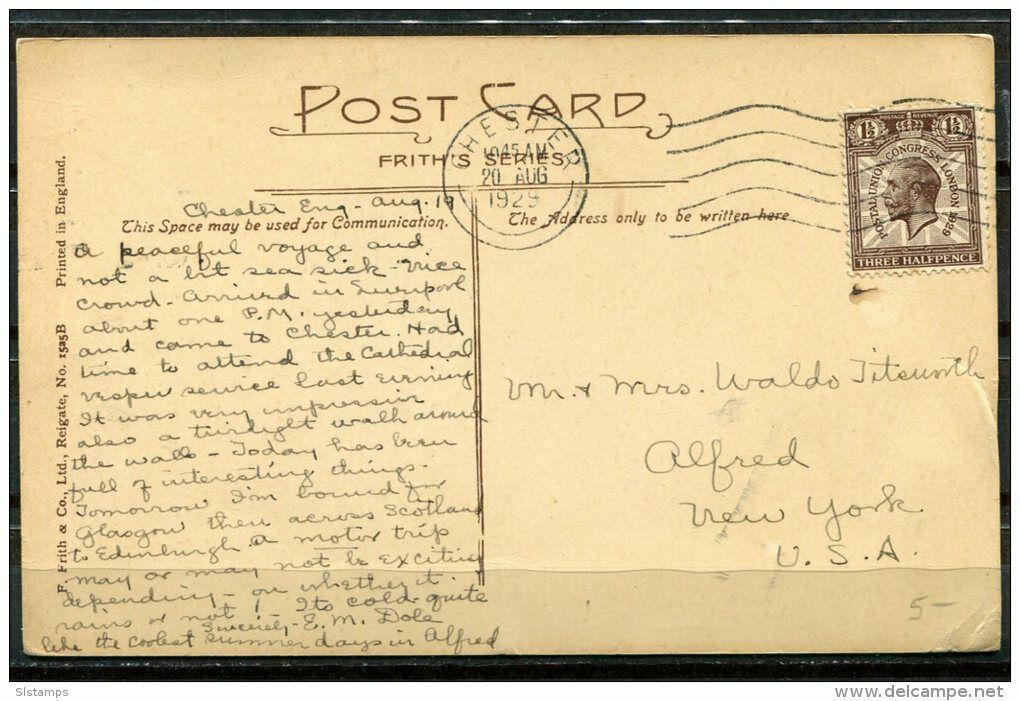 POST CARD
FRITH'S SERIES
CHESTER
1045 AM
20 AUG
1929
1½ POSTAGE REVENUE 1½
POSTAL UNION CONGRESS LONDON 1929
THREE HALFPENCE
This Space may be used for Communication.
The Address only to be written here
Chester Eng - Aug. 19
A peaceful voyage and
not a bit sea sick - nice
crowd - Arrived in Liverpool
about one P.M. yesterday
and came to Chester. Had
time to attend the Cathedral
vesper service last evening
It was very impressive
also a twilight walk around
the walls - Today has been
full of interesting things.
Tomorrow I'm bound for
Glasgow then across Scotland
to Edinburgh. A motor trip
may or may not be exciting
depending - on whether it
rains or not! Its cold quite
like the coolest summer days in Alfred
Sincerely - E. M. Dole
Mr. & Mrs. Waldo Titsworth
Alfred
New York
U. S. A.
5-
F. Frith & Co., Ltd., Reigate, No. 1525B Printed in England.
Slstamps
www.delcampe.net